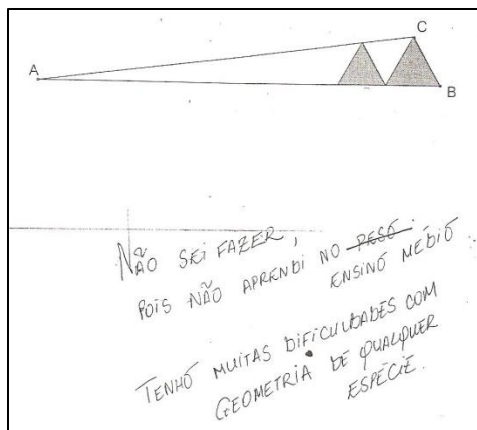 C
A
B
NÃO SEI FAZER,
POIS NÃO APRENDI NO RESO.
ENSINO MÉDIO
TENHO MUITAS DIFICULDADES COM
GEOMETRIA DE QUALQUER
ESPÉCIE.